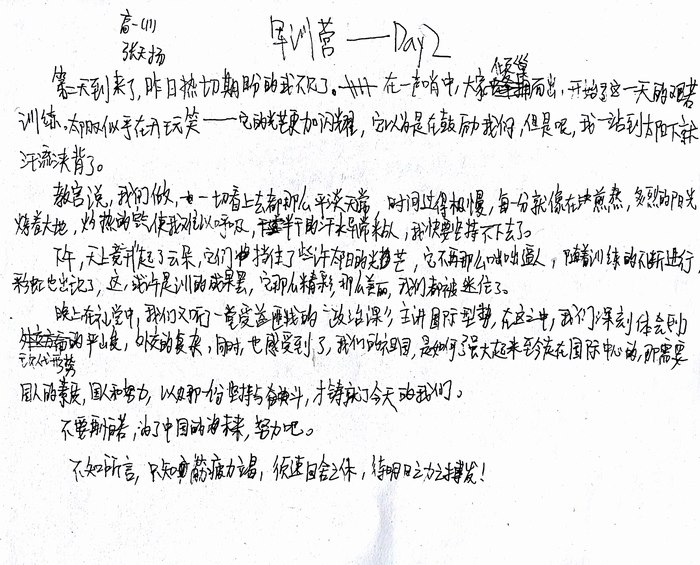 高一(11)
张天扬
军训营——Day2
第二天到来了,昨日热切期盼的我不见了。在一声哨中,大家倾巢而出,开始了这一天的艰苦
训练。太阳似乎在开玩笑——它的光芒更加闪耀,它以为是在鼓励我们,但是呢,我一站到太阳下就
汗流浃背了。
教官说,我们做,一切看上去都那么平淡无常,时间过得极慢,每一分就像在煎熬,炙烈的阳光
烧着大地,炽热的 使我难以呼吸,半干的汗水异常粘人,我快要坚持不下去了。
下午,天上竟升起了云朵,它们挡住了些许太阳的光芒,它不再那么咄咄逼人,随着训练的不断进行
彩虹也出现了,这,或许是训的成果罢,它那么精彩,那么美丽,我们都被迷住了。
晚上在礼堂中,我们又听了一堂受益匪浅的"政治课",主讲国际型势,在这之中,我们深刻体会到
外交方面的 ,外交的复杂,同时,也感受到了,我们的祖国,是如何强大起来至今走在国际中心的,那需要
国人的素质,国人和努力,以及那一份坚持与奋斗,才铸就了今天的我们。
不要再怕苦,为了中国的将来,努力吧。
不知所言,只知筋疲力尽,须速回舍之休,待明日之力之搏发!